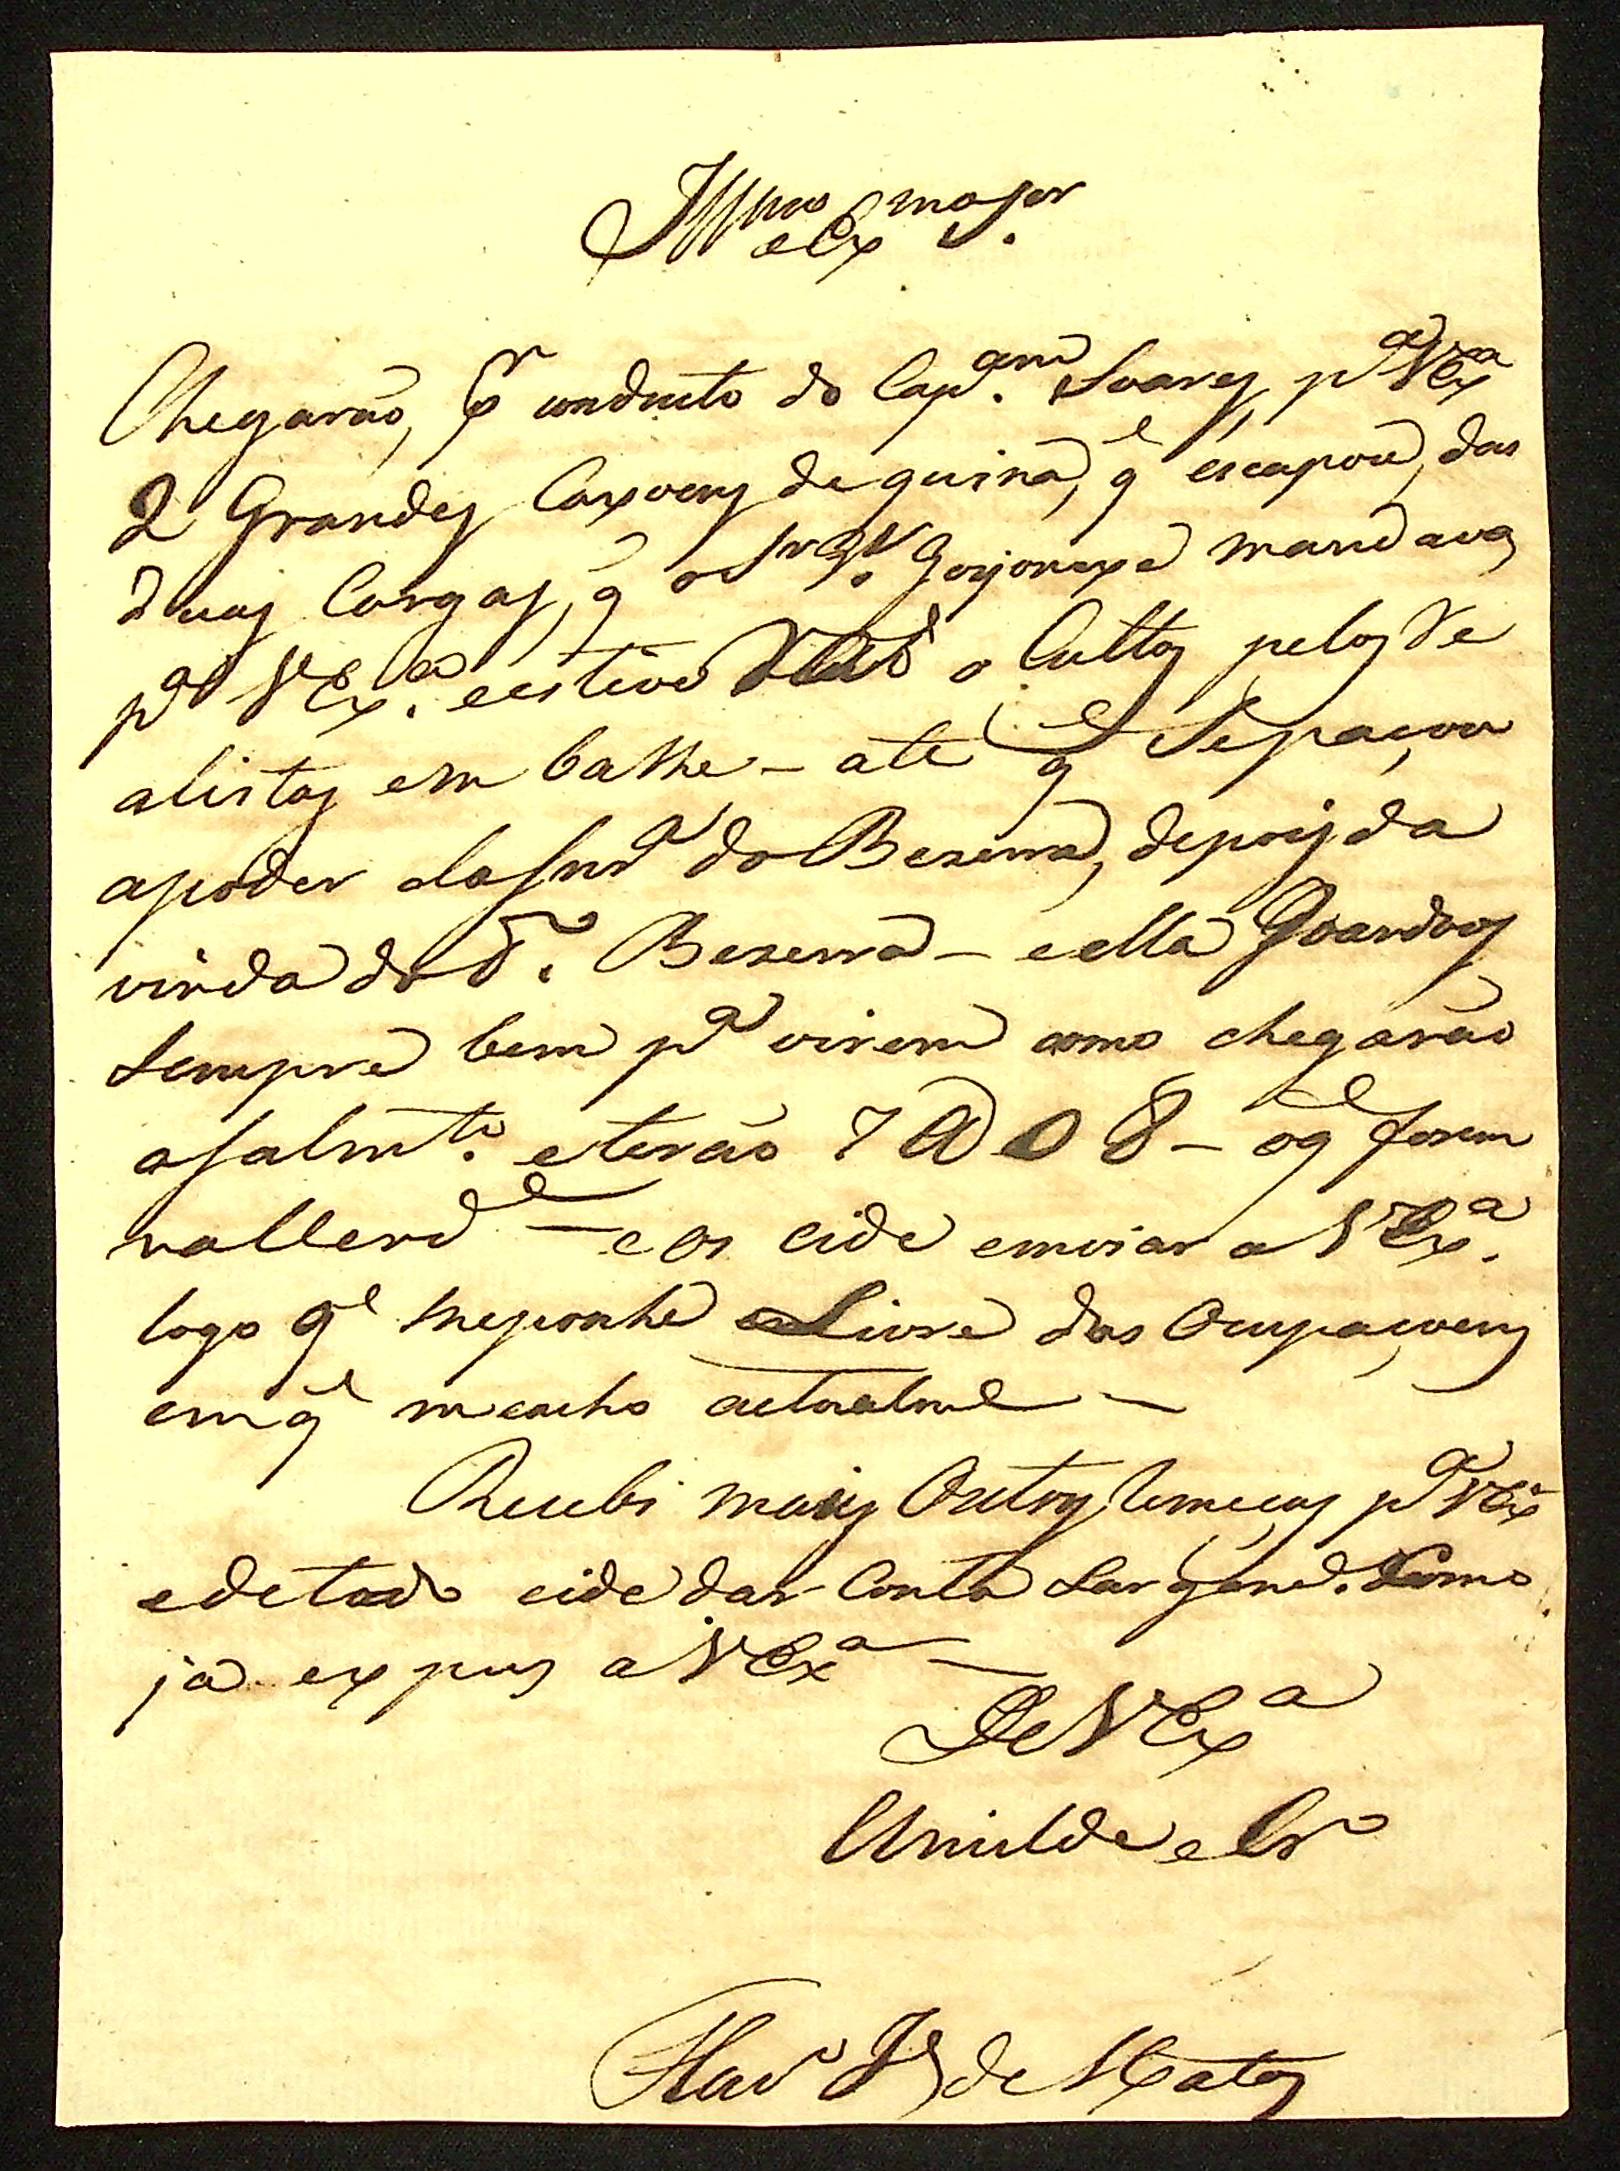 Illmo e Ex mo Snr.
Chegarão, pr conducto do Cap.am Soares, pa VExa
2 Grandes Caxoens de quina, q escapou, das
duas Cargas, q o Snr mandava
pa VExa. e esteve o Cultos pelos Re
alistas em balhe - ate q Se paçou
a poder da Snra do Bezerra, depois da
vinda do do. Bezerra - e ella Goardoos
Sempre bem pa virem como chegarão
a salmto. e terão 7 @ 8 - o q forem
na lleride - e os eide enviar a VExa.
logo q me ponha Livre das Ocupaçoens
em q me acho actualme -
Recebi mais Outros Remeças pa VEx
e de todo eide dar Conta Largando. Como
já expus a VExa -
De VExa
Umilde e Cro
Flavo Je de Matos